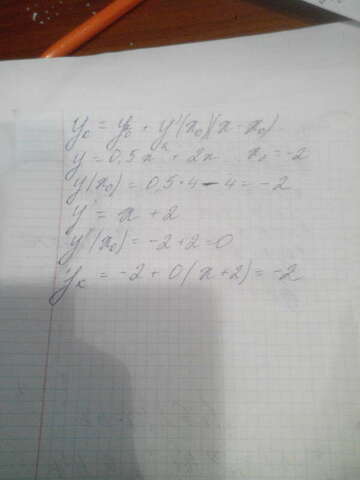 y₀ = y₀ + y'(x₀)(x - x₀)
y = 0,5x² + 2x x₀ = -2
y(x₀) = 0,5·4 - 4 = -2
y' = x + 2
y'(x₀) = -2+2=0
yₖ = -2 + 0(x+2) = -2